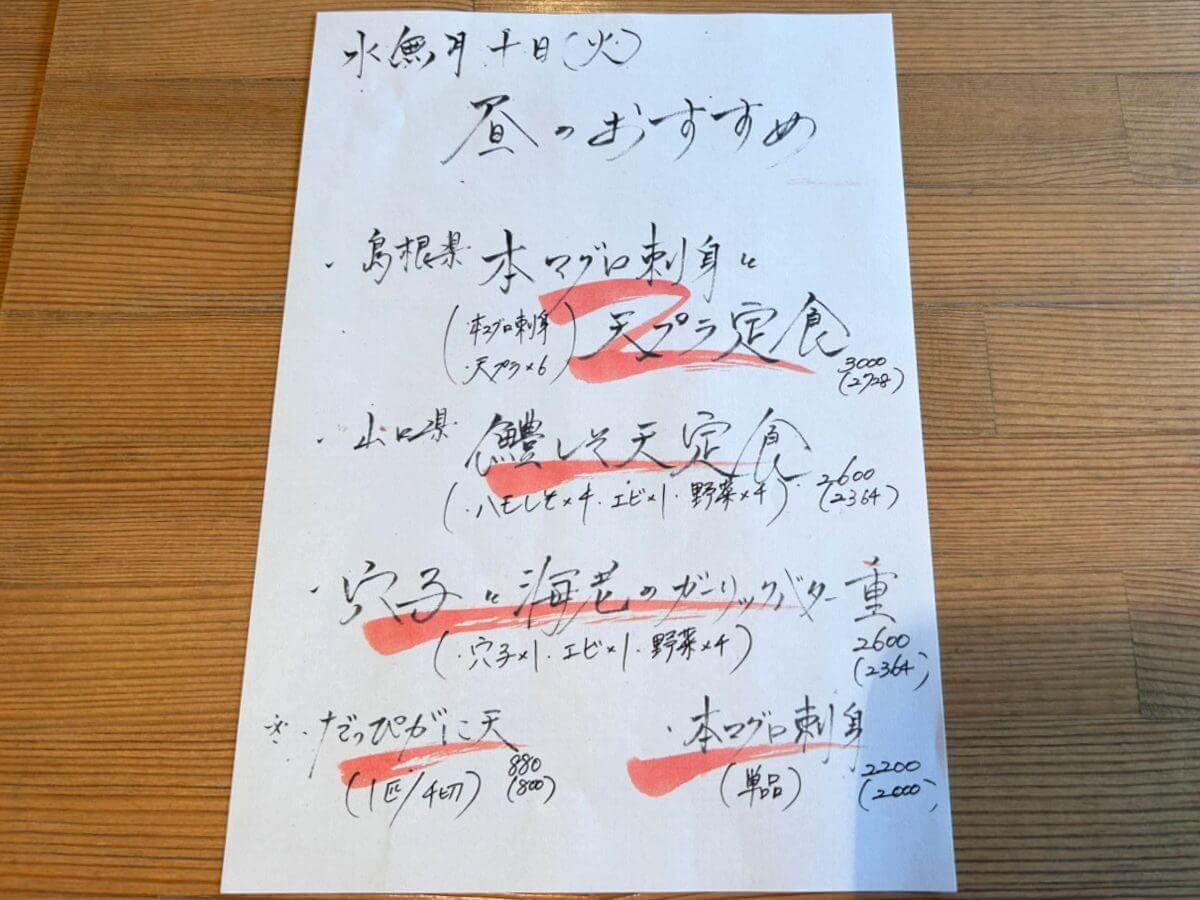 水無月十日(火)
昼のおすすめ
・島根県 本マグロ刺身と
天プラ定食
(・本マグロ刺身
・天プラ×6)
3000
(2728)
・山口県 鱧しそ天定食
(・ハモしそ×4・エビ×1・野菜×4)
2600
(2364)
・穴子と海老のガーリックバター重
(・穴子×1・エビ×1・野菜×4)
2600
(2364)
※・だっぴがに天
(1匹/4切)
880
(800)
・本マグロ刺身
(単品)
2200
(2000)